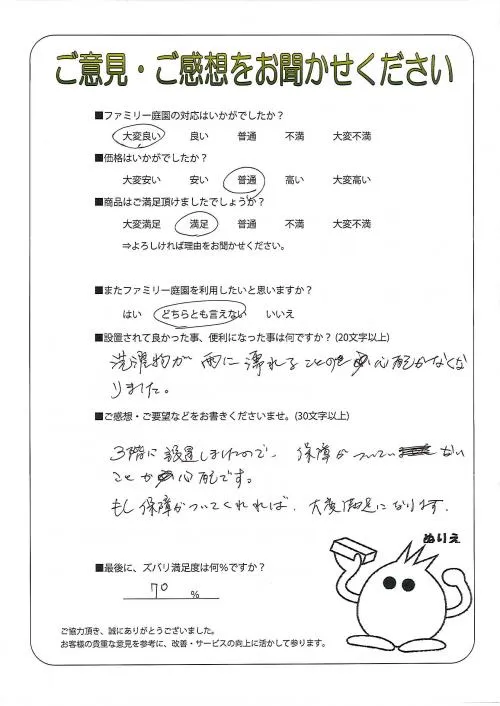 ご意見・ご感想をお聞かせください
■ファミリー庭園の対応はいかがでしたか？
大変良い 良い 普通 不満 大変不満
■価格はいかがでしたか？
大変安い 安い 普通 高い 大変高い
■商品はご満足頂けましたでしょうか？
大変満足 満足 普通 不満 大変不満
⇒よろしければ理由をお聞かせください。
■またファミリー庭園を利用したいと思いますか？
はい どちらとも言えない いいえ
■設置されて良かった事、便利になった事は何ですか？(20文字以上)
洗濯物が雨に濡れることの心配がなくな
りました。
■ご感想・ご要望などをお書きくださいませ。(30文字以上)
3階に設置しましたので、保障がついていない
ことが心配です。
もし保障がついてくれれば、大変満足になります.
ぬりえ
■最後に、ズバリ満足度は何％ですか？
70 ％
ご協力頂き、誠にありがとうございました。
お客様の貴重な意見を参考に、改善・サービスの向上に活かして参ります。